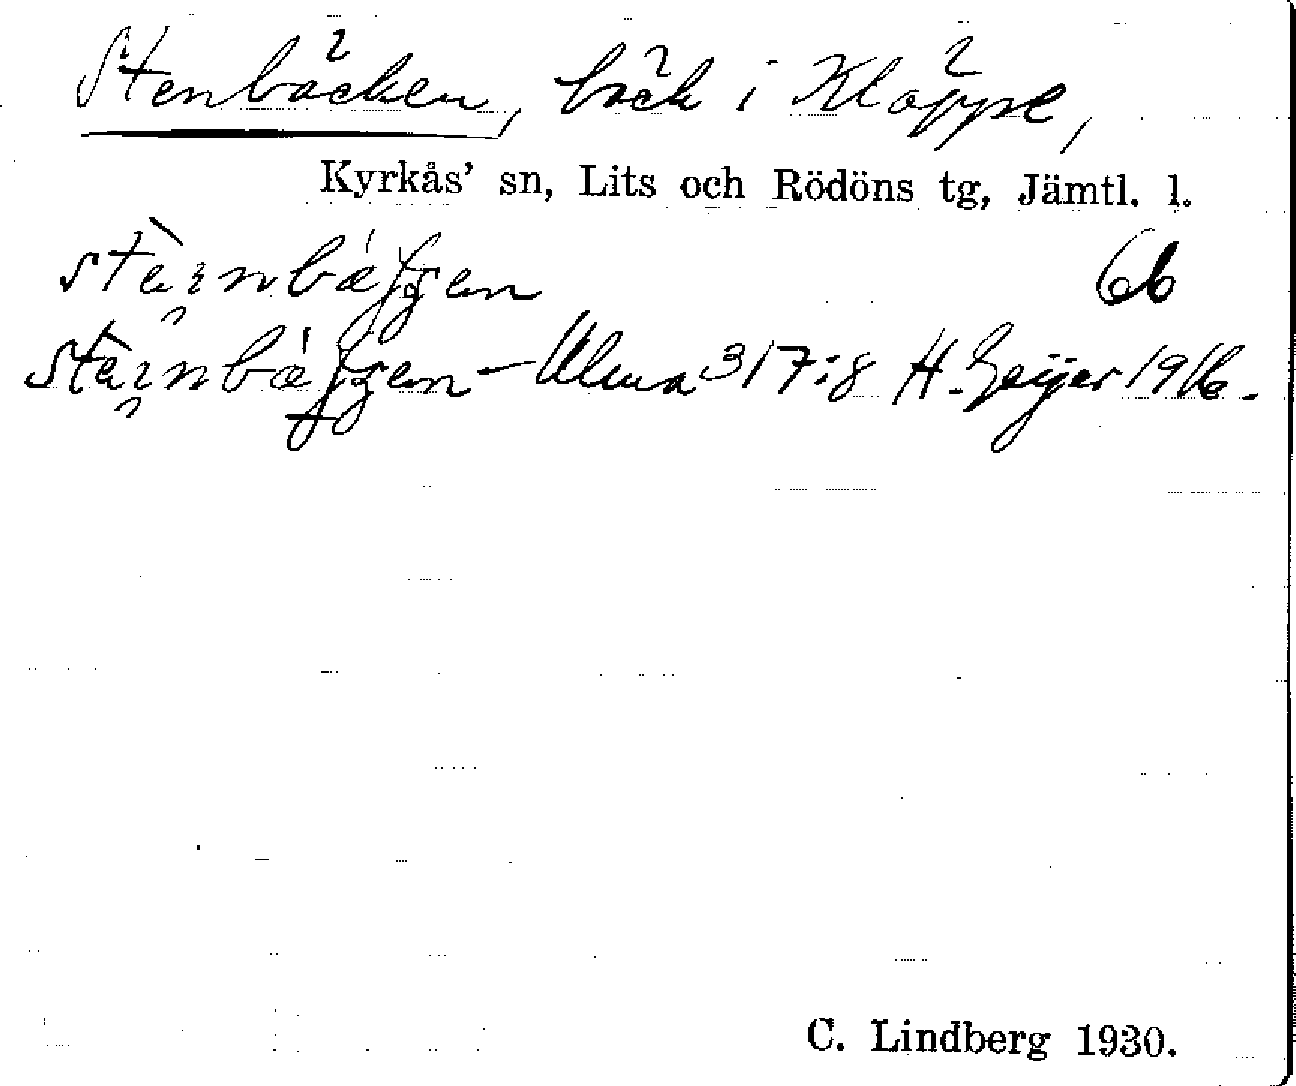 Stenbäcken, bäck i Kläppe,
Kyrkås' sn, Lits och Rödöns tg, Jämtl. l.
6b
Ulma 317:8 H. Geijer 1916.
C. Lindberg 1930.